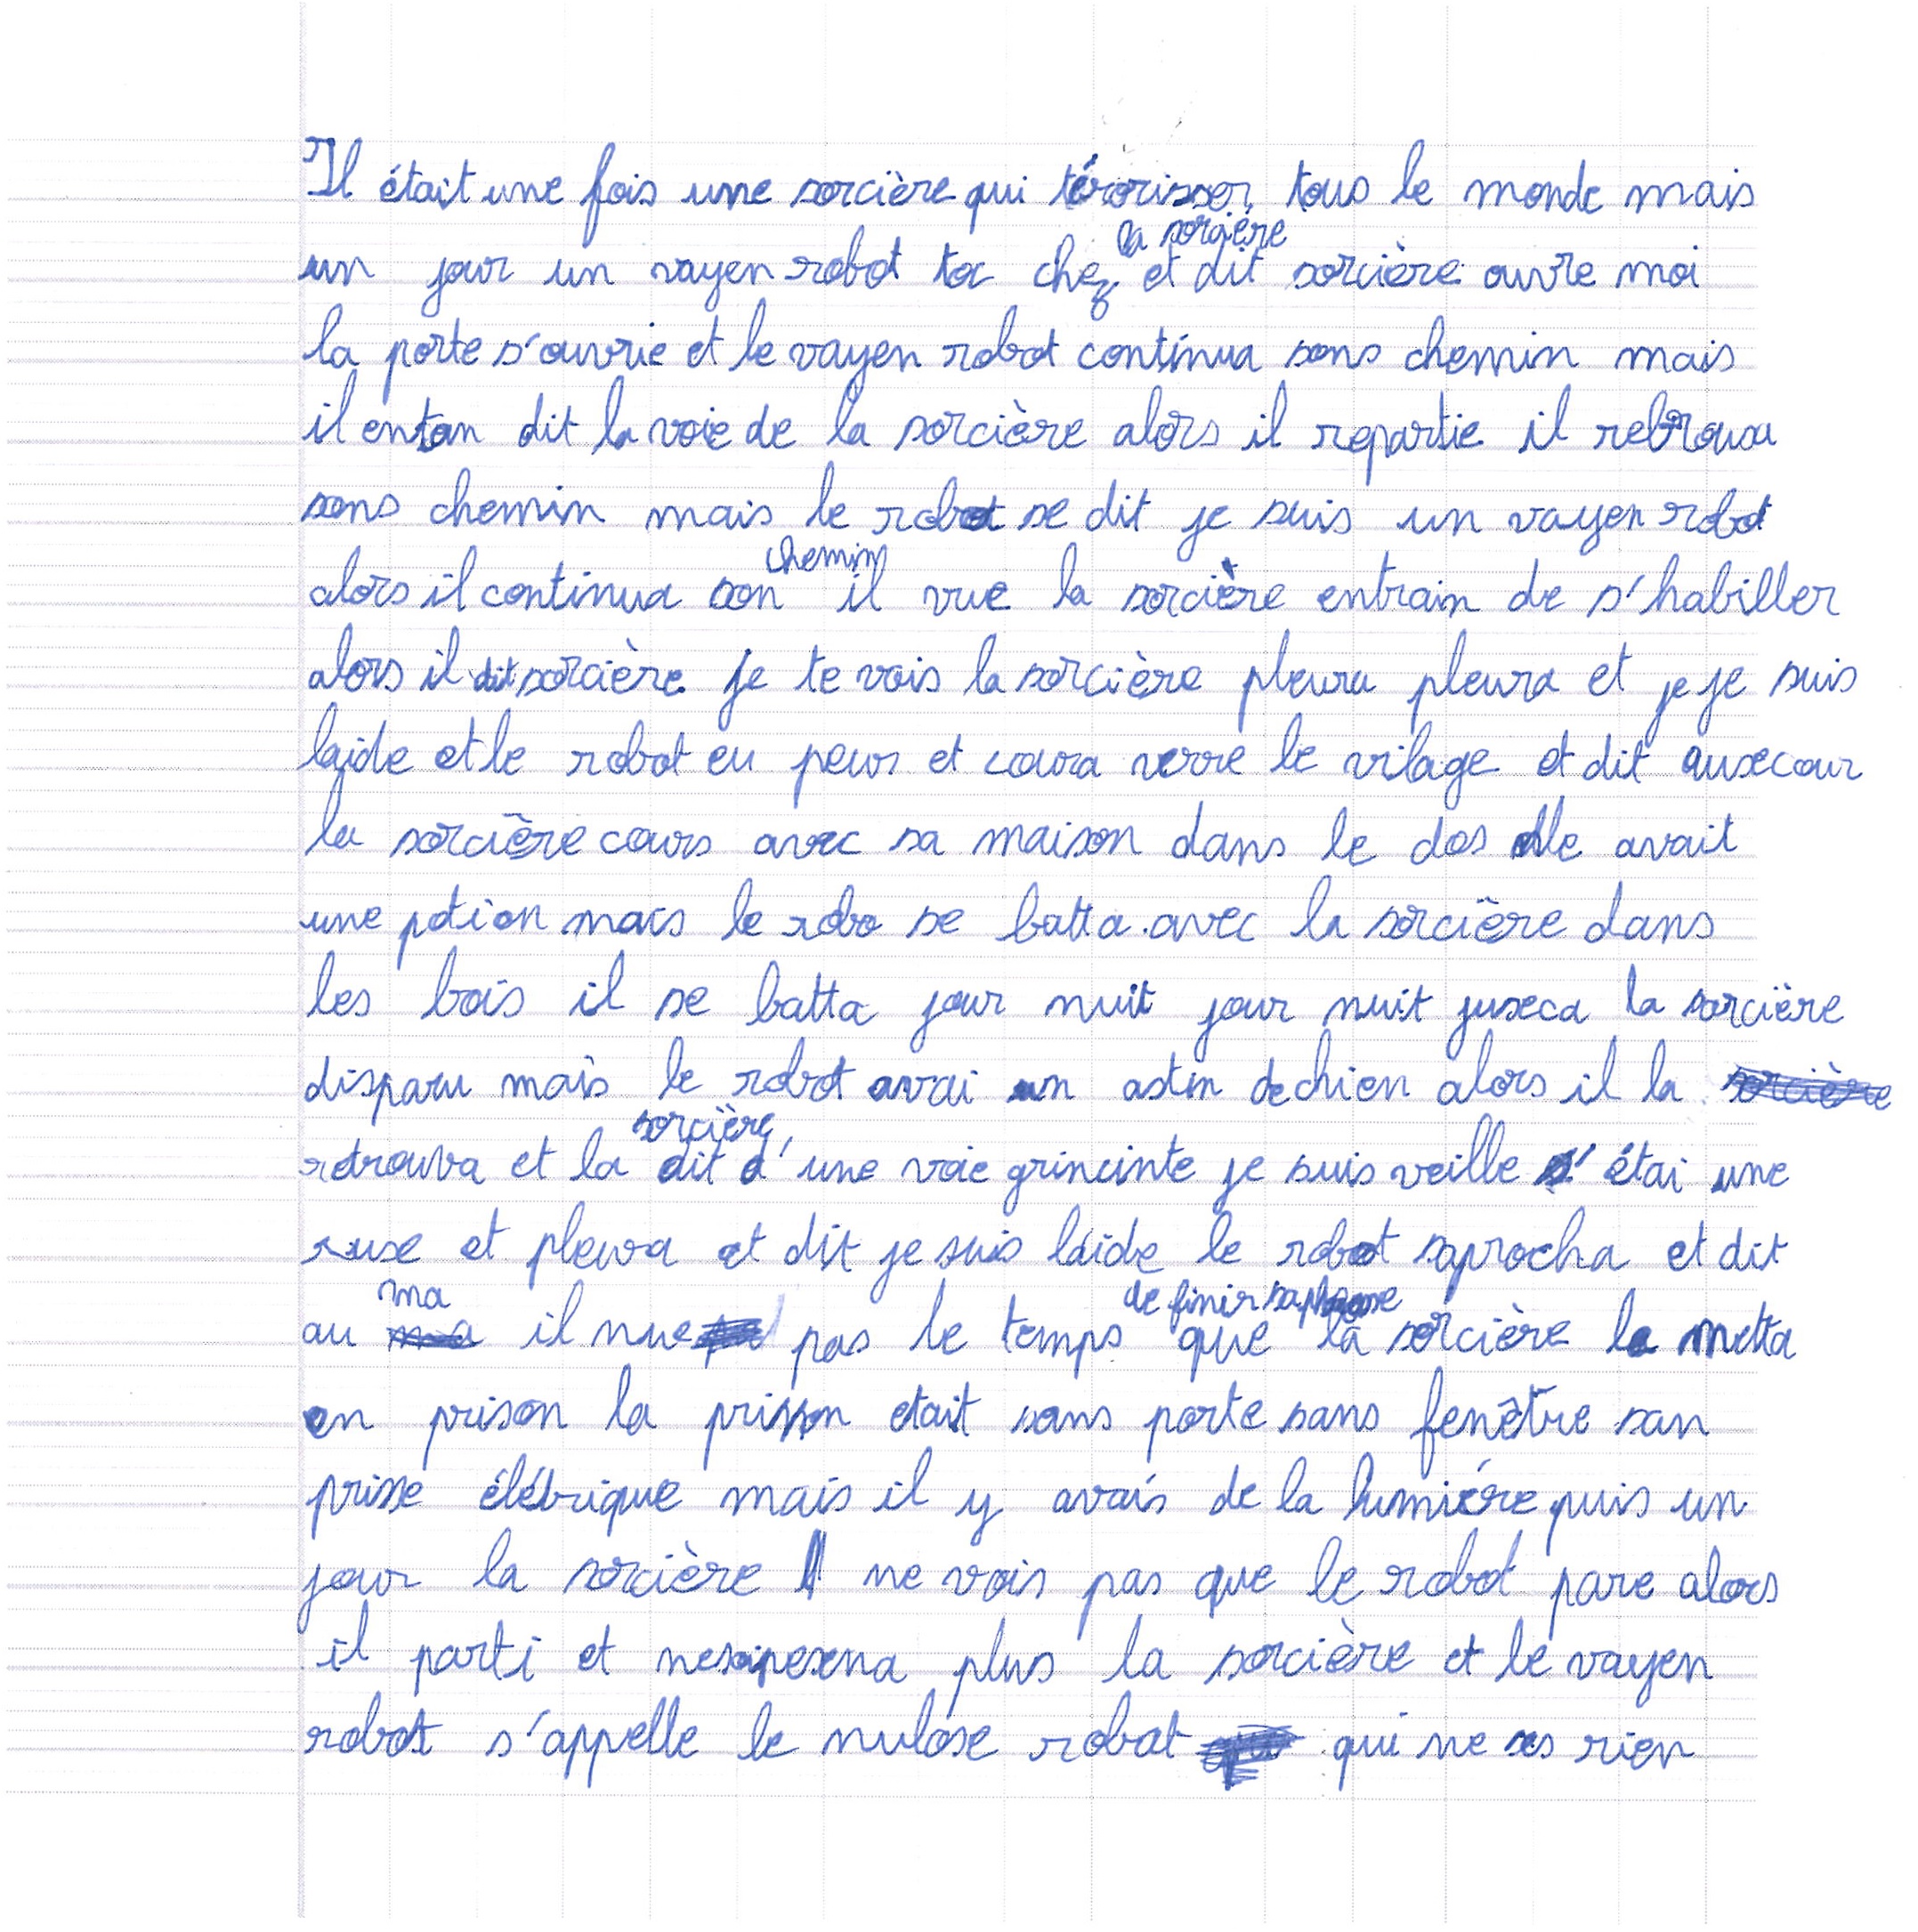 Il était une fois une sorcière qui térorisser tous le monde mais
un jour un vayen robot toc chez la sorcière et dit sorcière ouvre moi
la porte s'ouvrie et le vayen robot continua sons chemin mais
il entan dit la voie de la sorcière alors il repartie il rebrousa
sons chemin mais le robot se dit je suis un vayen robot
alors il continua son chemin il vue la sorcière entrain de s'habiller
alors il dit sorcière je te vois la sorcière pleura pleura et je je suis
laide et le robot eu peurs et coura verre le vilage et dit ausecour
la sorcière cours avec sa maison dans le dos elle avait
une potion mais le robo se batta avec la sorcière dans
les bois il se batta jour nuit jour nuit juseca la sorcière
disparu mais le robot avai un astin de chien alors il la
retrouva et la sorcière dit d'une voie grincinte je suis veille s'étai une
ruse et pleura et dit je suis laide le robot saprocha et dit
au ma il nue pas le temps de finir saphrase que la sorcière le metta
en prison la prison etait sans porte sans fenêtre san
prise élébrique mais il y avais de la lumiére puis un
jour la sorcière ne vois pas que le robot pare alors
il parti et nesapesena plus la sorcière et le vayen
robot s'appelle le nulose robot qui ne ses rien